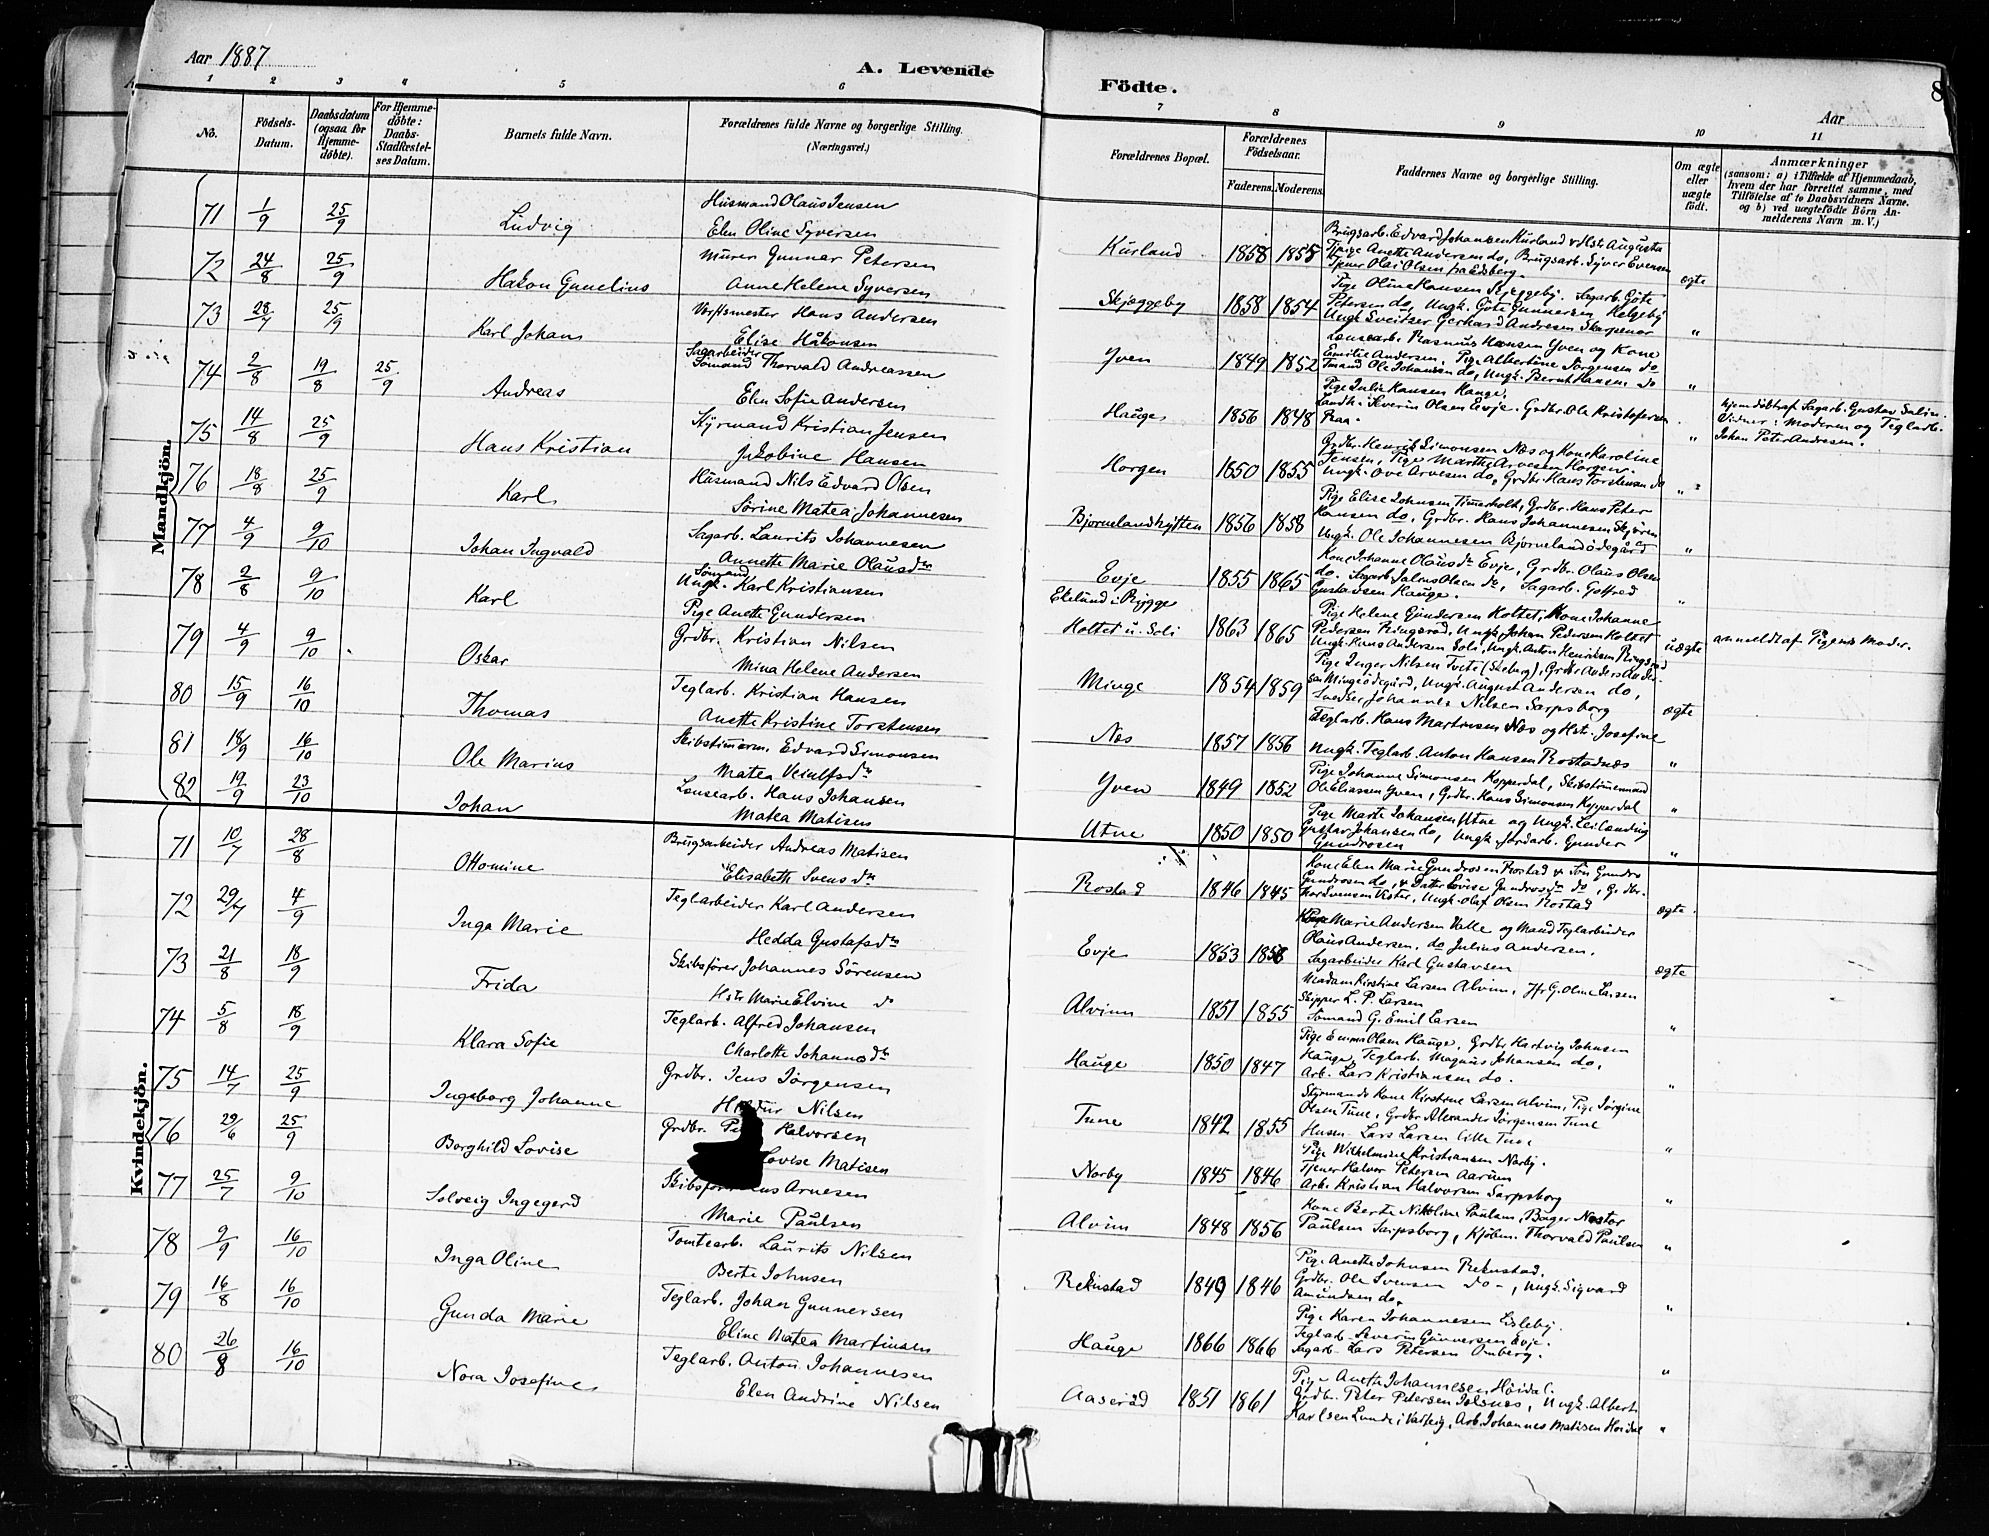 Aar 1887
A. Levende
Födte.
8
Aar
1 2 3 4 5 6 7 8 9 10 11
No.
Födsels-Datum.
Daabsdatum (ogsaa for Hjemmedöbte).
For Hjemmedöbte: Daabs-Stadfæstelses Datum.
Barnets fulde Navn.
Forældrenes fulde Navne og borgerlige Stilling.
(Næringsvei.)
Forældrenes Bopæl.
Forældrenes Födselsaar.
Faderens. Moderens.
Faddernes Navne og borgerlige Stilling.
Om ægte eller uægte födt.
Anmærkninger
(sansom: a) i Tilfælde af Hjemmedaab, hvem der har forrettet samme, med Tilföielse af to Daabsvidners Navne. og b) ved uægtefödte Börn Anmelderens Navn m. V.)
Mandkjön.
71 1/9 25/9 Ludvig
Husmand Olaus Jensen
Elen Oline Syversen
Kurland 1858 1855
Brugsarb. Edvard Johansen Kurland & Hstr Augusta
Pige Anette Andersen do, Brugsarb. Syver Evensen
Tjener Olai Olsen fra Edsberg.
ægte
72 24/8 25/9 Hakon Gunelius
Murer Gunnar Petersen
Anne Helene Syversen
Skjeggeby 1858 1854
Pige Oline Hansen Skjeggeby. Sagarb. Göte
Petersen do, Ungk. Göte Gunnersen Helgeby
Ungk. Sveitser Gerhard Andresen Skarpenor
"
73 28/7 25/9 Karl Johans
Værftsmester Hans Andersen
Elise Håkonsen
Yven 1849 1852
Lænsearb. Rasmus Hansen Yven og Kone
Emilie Andersen, Pige Albertine Jörgensen do
Tmand Ole Johansen do, Ungk. Bernt Hansen do
"
74 2/8 19/8 25/9 Andreas
Sagarbeider
Sömand Thorvald Andreassen
Elen Sofie Andersen
Hauge 1856 1848
Pige Julie Hansen Hauge.
Landh. Severin Olsen Evje. Grdbr. Ole Kristofersen
Raa.
"
hjemdöbt af Sagarb. Gustav Salin.
Vidner: Moderen og Teglarb.
Johan Peter Andresen.
75 14/8 25/9 Hans Kristian
Styrmand Kristian Jensen
Jakobine Hansen
Horgen 1850 1855
Grdbr. Henrik Simonsen Næs og Kone Karoline
Jensen, Pige Marthe Arvesen Horgen.
Ungk. Ove Arvesen do, Grdbr. Hans Torstensen do
"
76 18/8 25/9 Karl
Husmand Nils Edvard Olsen
Sörine Matea Johannesen
Bjørnelandhytten 1856 1858
Pige Elise Johnsen Timerholt, Grdbr. Hans Peter
Hansen do, Grdbr. Hans Johannesen Skjören
Ungk. Ole Johannesen Bjørnelandödegård
"
77 4/9 9/10 Johan Ingvald
Sagarb. Laurits Johannesen
Annette Marie Olausdtr
Evje 1855 1865
Kone Johanne Olausdtr Evje, Grdbr. Olaus Olsen
do. Sagarb. Julius Olsen do, Sagarb. Gotfred
Gustavsen Hauge.
"
78 2/8 9/10 Karl
Sömand
Ungk. Karl Kristiansen
Pige Anette Gundersen
Ekelund i Rygge
Holtet u. Soli 1863 1865
Pige Helene Gundersen Holtet, Kone Johanne
Pedersen Ringsrød, Ungk. Johan Pedersen Holtet
Ungk. Hans Andersen Soli, Ungk. Anton Henriksen Ringsrød
uægte
anmeldt af Pigens Moder.
79 4/9 9/10 Oskar
Grdbr. Kristian Nilsen
Mina Helene Andersen
Minge 1854 1859
Pige Inger Nilsen Tvete (Skeberg), Grdbr Anders Andersen
Mingeödegård, Ungk. August Andersen do,
Svedker Johannes Nilsen Sarpsborg
ægte
80 15/9 16/10 Thomas
Teglarb. Kristian Hansen
Anette Kristine Torstensen
Næs 1857 1856
Teglarb. Hans Martinsen Næs og Hstr. Josefine
Ungk. Teglarb. Anton Hansen Rostadnæs
"
81 18/9 16/10 Ole Marius
Skibstimerm. Edvard Simonsen
Matea Veiulfsdtr
Yven 1849 1852
Pige Johanne Simonsen Kopperdal, Skibstimermand
Ole Eliassen Yven, Grdbr. Hans Simonsen Kopperdal
"
82 19/9 23/10 Johan
Lænsearb. Hans Johansen
Matea Matisen
Utne 1850 1850
Pige Marte Johansen Utne og Ungk. Leilænding
Gustav Johansen do, Ungk. Jordarb. Gunder
Gundrosen
"
Kvindekjön.
71 10/7 28/8 Ottomine
Brugsarbeider Andreas Matisen
Elisabeth Svensdtr
Rostad 1846 1845
Kone Elen Marie Gundrosen Rostad & Sön Gundro
Gundrosen do, & Datter Lovise Gundrosdtr do, Grdbr.
Thor Svensen Vister, Ungk. Olaf Olsen Rostad
ægte.
72 29/7 4/9 Inga Marie
Teglarbeider Karl Andersen
Hedda Gustafsdtr
Evje 1853 1858
Kone Marie Andersen Valle og Mand Teglarbeider
Olaus Andersen, do Julius Andersen.
Sagarbeider Karl Gustavsen
ægte
73 21/8 18/9 Frida
Skibsförer Johannes Sörensen
Hstr Marie Elvine do
Alvim 1851 1855
Madam Kirstine Larsen Alvim, Jfr G. Oline Larsen
Skipper L. P. Larsen
Sömand G. Emil Larsen
"
74 5/8 18/9 Klara Sofie
Teglarb. Alfred Johansen
Charlotte Johannesdtr
Hauge 1850 1847
Pige Emma Olsen Hauge, Grdbr Hartvig Johnsen
Hauge, Teglarb. Magnus Johansen do,
Arb. Lars Kristiansen do.
"
75 14/7 25/9 Ingeborg Johanne
Grdbr. Jens Jørgensen
Nilsen
Tune 1842 1855
Styrmands Kone Kirstine Larsen Alvim, Pige Jörgine
Olsen Tune, Grdbr Alexander Jörgensen Tune
Husm. Lars Larsen lille Tune
"
76 29/6 25/9 Borghild Lovise
Grdbr. Halvorsen
Lovise Matisen
Norby 1845 1846
Pige Wilhelmine Kristiansen Norby.
Tjener Halvor Petersen Aarum
Arb. Kristian Halvorsen Sarpsborg
"
77 25/7 9/10 Solveig Ingegerd
Arnesen
Marie Paulsen
Alvim 1848 1856
Kone Berte Nikoline Paulsen, Bager Nestor
Paulsen Sarpsborg, Kjöbm. Thorvald Paulsen
"
78 9/9 16/10 Inga Oline
Tomtearb. Laurits Nilsen
Berte Johnsen
Rekustad 1849 1846
Pige Anette Johnsen Rekustad.
Grdbr. Ole Svensen do-, Ungk. Sigvard
Amundsen do.
"
79 16/8 16/10 Gunda Marie
Teglarb. Johan Gunnersen
Eline Matea Martinsen
Hauge 1866 1866
Pige Karen Johannesen Lisleby.
Teglarb. Severin Gunnersen Evje.
Sagarb. Lars Petersen Omberg.
"
80 26/8 16/10 Nora Josefine
Teglarb. Anton Johannesen
Elen Andrine Nilsen
Aaseröd 1851 1861
Pige Anette Johannesen Höidal.
Grdbr. Peter Petersen Jelsnes, Ungk. Albert
Karlsen Lunde i Varteig, Arb. Johannes Matisen Höidal
"